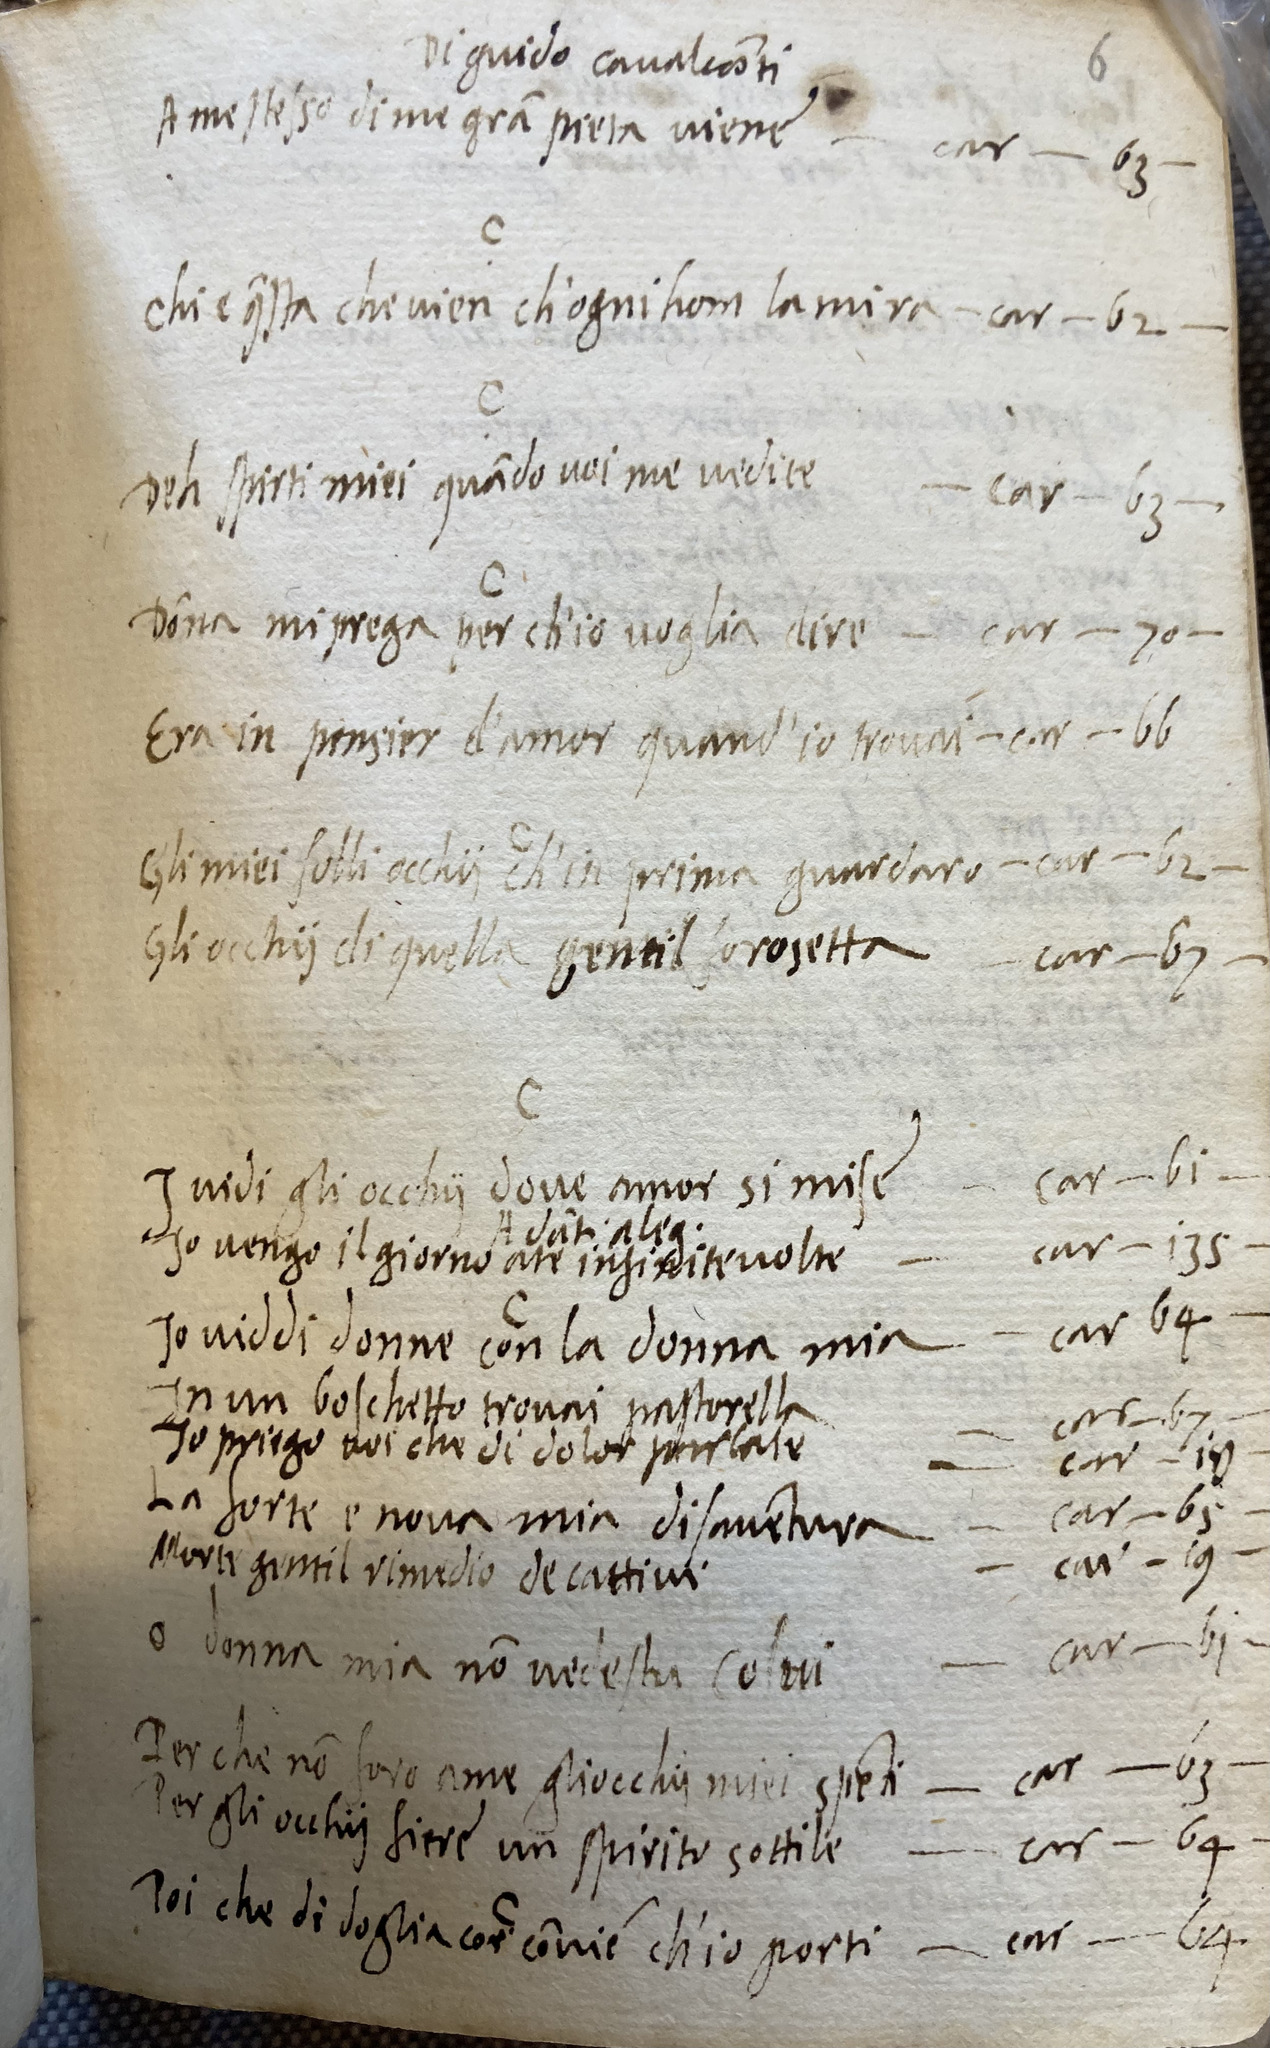 Di guido caualcãti
6
A me stesso di me grã pieta viene — car — 63 —
C
Chi e q̃sta che vien ch'ogni hom la mira — car — 62 —
C
Deh spirti miei quãdo voi me vedite — car — 63 —
C
Dõna mi prega per ch'io voglia dire — car — 70 —
Era in pensier d'amor quand'io trovai — car — 66
C
Gli miei folli occhij ch'in prima guardaro — car — 62 —
Gli occhij di quella gentil forosetta — car — 67 —
C
I vidi gli occhij dove amor si mise — car — 61 —
A dãti alig.
Io vengo il giorno a te infinite volte — car — 135 —
C
Io viddi donne con la donna mia — car 64 —
In un boschetto trovai pastorella — car — 67 —
Io priego voi che di dolor parlate — car — 18
La forte e nova mia disavẽtura — car — 65 —
Morte gentil rimedio de cattivi — car — 19 —
O donna mia nõ vedestu colui — car — 61 —
Per che nõ foro a me gli occhij miei spẽti — car — 63 —
Per gli occhij fiere un spirito sottile — car — 64 —
C
Poi che di doglia cor cõviẽ ch'io porti — car — 64